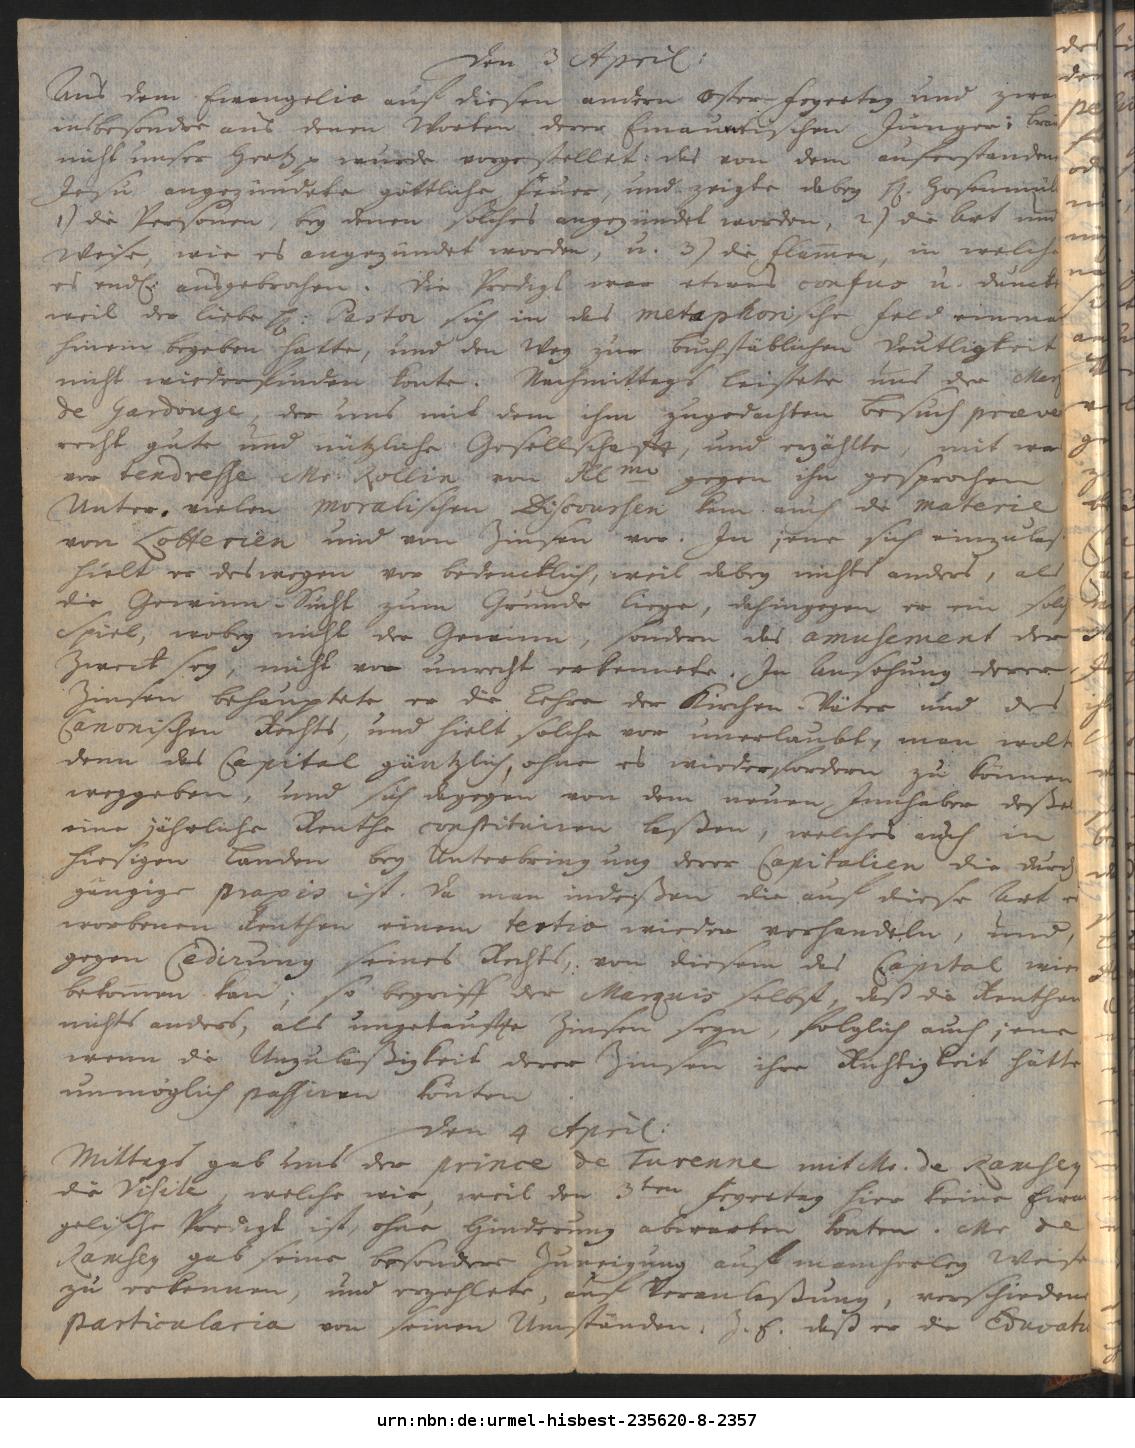 Den 3 April:
Aus dem Evangelio auf diesen andern Oster-Feyertag und zwar
insbesondre aus denen Worten derer Emauntischen Jünger: bran
nicht unser Hertz p wurde vorgestellet: das von dem auferstanden
Jesu angezündete göttliche Feuer, und zeigte dabey H.
1) die Personen, bey denen solches angezündet worden, 2) die Art und
Weise, wie es angezündet worden, u. 3) die Flam̄en, in welche
es endl: ausgebrochen. Die Predigt war etwas confus u. dunck
weil der liebe H: Pastor sich in das metaphorische Feld einma
hinein begeben hatte, und den Weg zur buchstäblichen Deutligkeit
nicht wiederfinden konte. Nachmittags leistete uns der Marq
de Gardouge, der uns mit dem ihm zugedachten Besuch præve
recht gute und nützliche Gesellschafft, und erzählte, mit wa
vor tendresse Mr: Rollin von Illmo gegen ihn gesprochen
Unter vielen moralischen Discoursen kam auch die materie
von Lotterien und von Zinsen vor. In jene sich einzulas
hielt er deswegen vor bedencklich, weil dabey nichts anders, als
die Gewinn-Sucht zum Grunde liege, dahingegen er ein solch
Spiel, wobey nicht der Gewinn, sondern das amusement der
Zweck sey, nicht vor unrecht erkennete. In Ansehung derer
Zinsen behauptete er die Lehre der Kirchen-Väter und des
Canonischen Rechts, und hielt solche vor unerlaubt, man wolt
denn das Capital gäntzlich, ohne es wiederfordern zu können
weggeben, und sich dagegen von dem neuen Innhaber deße
eine jährliche Renthe constituiren laßen, welches auch in
hiesigen Landen bey Unterbringung derer Capitalien die durch
gängige praxis ist. Da man indeßen die auf diese Art e
worbenen Renthen einem tertio wieder verhandeln, und,
gegen Cedirung seines Rechts, von diesem das Capital wie
bekom̄en kan; so begriff der Marquis selbst, daß die Renthen
nichts anders, als umgetauffte Zinsen seyn, folglich auch jene
wenn die Unzuläßigkeit derer Zinsen ihre Richtigkeit hätte
unmöglich passiren könten.
Den 4 April:
Mittags gab uns der prince de Turenne mit Mr. de Ramsey
die Visite, welche wir, weil den 3ten Feyertag hier keine Evan
gelische Predigt ist, ohne Hinderung abwarten konten. Mr de
Ramsey gab seine besondere Zuneigung auf mancherley Weise
zu erkennen, und erzehlete, auf Veranlaßung, verschiedene
particularia von seinen Umständen. Z. E. daß er die Educati
urn:nbn:de:urmel-hisbest-235620-8-2357